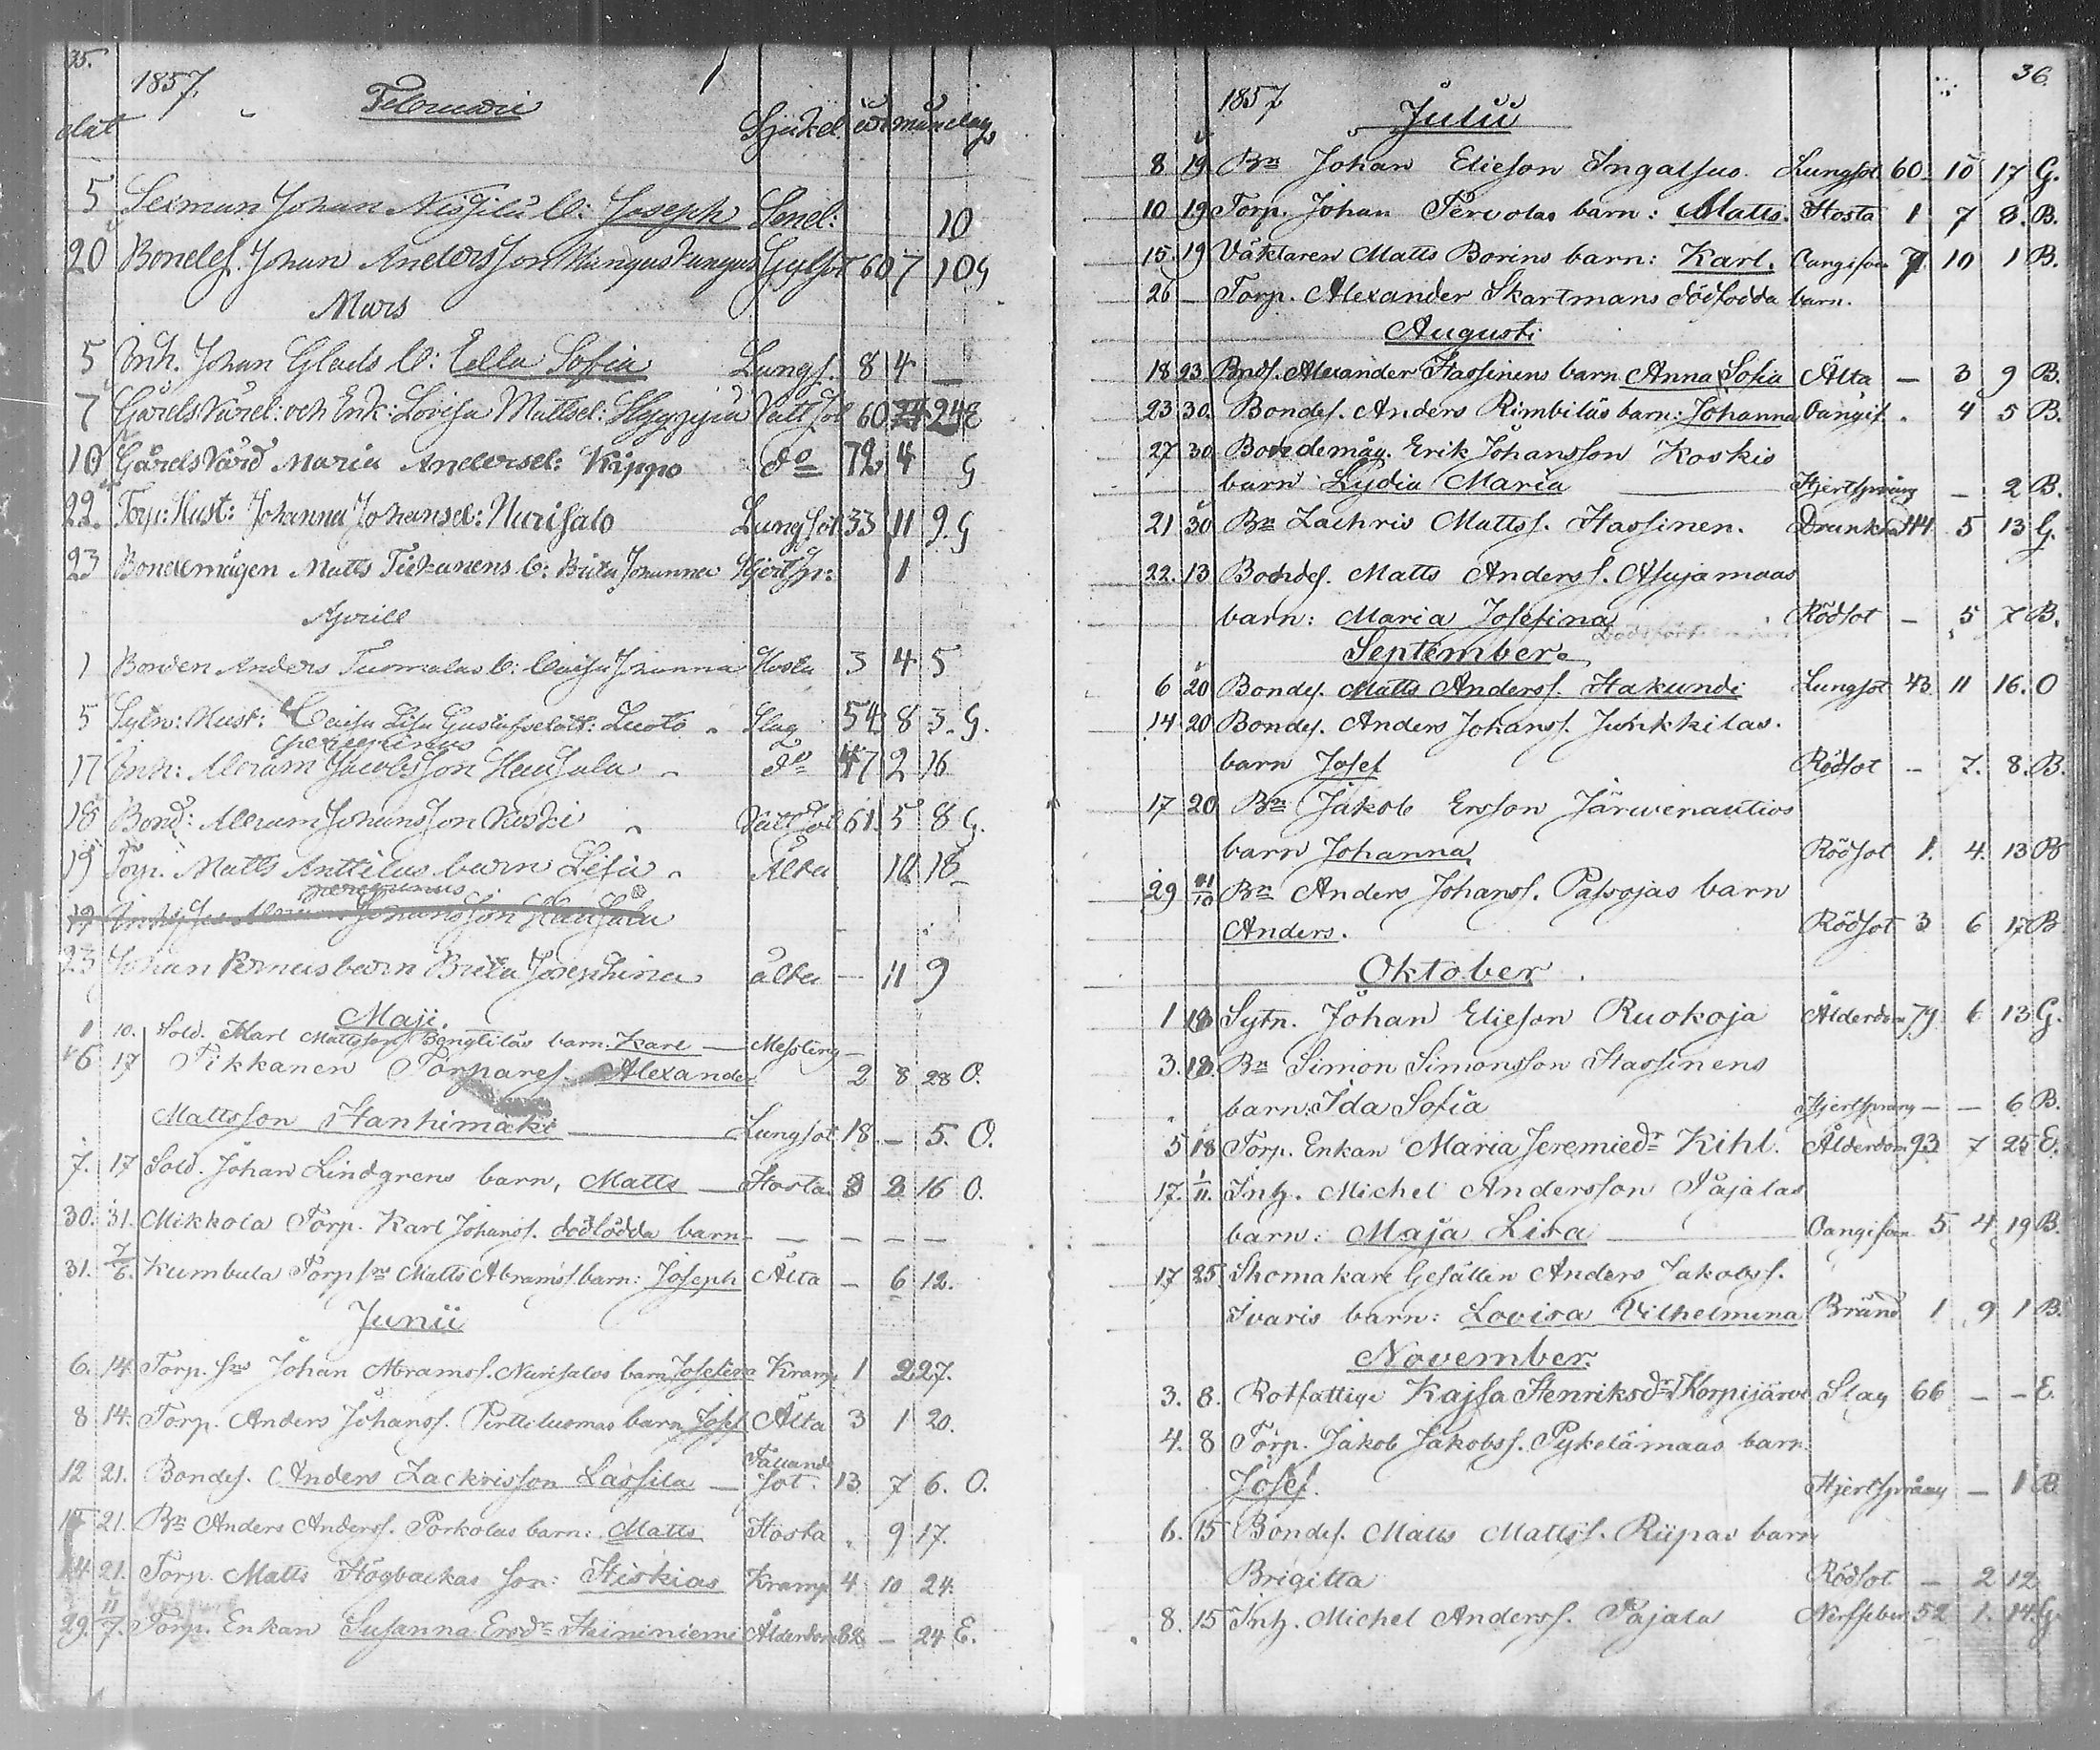 35.
1857.
Februarii
dat Sjukd. år mån dag
5 Sexman Johan b: Joseph Send: 10
20 Bondes. Johan Andersson Kungas 60 7 10 G
Mars
5 Inh. Johan Glads b: Ulla Sofia Lungs. 8 4 —
7 Gårds Vard: och Enk: Lovisa Mattsd: Vatt Sot 60 24 E
10 Gårds Vård Maria Andersd: Kippo do 72 4 G
22. Torp: Hust: Johanna Johansd: Nurisalo Lungsot 33 11 9. G
23 Bondemågen Matts Tikkanens b: Brita Johanna Hjertspr: 1
Aprill
1 Bonden Anders Tuomalas b: Caisa Johanna Hosta 3 4 5
5 Sytn: Hust: Caisa Lisa Gustafsdott: Luoto Slag 54 8 3. G.
peregrinus
17 Inh: Abram Jacobsson Haujala do 47 2 16
18 Bond: Abram Johansson Koski Vatt Sot 61. 5 8 G.
19 Torp. Matts Anttilas barn Lisa Älta 10 18
peregrinus
19 Johansson Haujala
23 Johan barn Brita Josephina älta — 11 9
Maji.
1 10. Sold. Karl Mattsson Bengtiläs barn. Karl — Messling —
16 17 Tikkanen Torpares. Alexander 2 8 28 O.
Mattsson Hanhimäki Lungsot 18 — 5. O.
7. 17 Sold. Johan Lindgrens barn, Matts — Hosta 8 2 16 O.
30. 31. Mikkola Torp. Karl Johanss. dödfödda barn — — — —
31. 7/6. Kumbula Torp sns Matts Abramss. barn: Joseph Älta — 6 12.
Junii
6. 14. Torp. sns Johan Abramss. Nurisalos barn Josefina Kramp 1 2 27.
8 14. Torp. Anders Johanss. Perttiluomas barn Josef Älta 3 1 20.
12 21. Bondes. Anders Zackrisson Lassila — Fallande Sot. 13 7 6. O.
15 21. Bn Anders Anderss. Porkolas barn: Matts Hosta 9 17.
14 21. Torp. Matts Högbackas son: Hiskias Kramp 4 10 24.
29. 7. Torp. Enkan Susanna Ersdr Heininiemi Ålderdom 82 — 24 E.
36.
1857
Julii
8 19 Bn Johan Elieson Ingalsuo. Lungsot 60 10 17 G.
10 19 Torp. Johan Pervolas barn: Matts. Hosta 1 7 8. B.
15. 19 Väktaren Matts Borins barn: Karl. Oangifven 10 1 B.
26 — Torp. Alexander Skartmans dödfödda barn.
Augusti
18 23 Bnds. Alexander Hassinens barn Anna Sofia Älta — 3 9 B.
23 30. Bondes. Anders Rimbiläs barn: Johanna Oangif. 4 5 B.
27 30 Bondemåg. Erik Johansson Koskis
barn Lydia Maria — Hjertsprång — 2 B.
21 30 Bn Zachris Mattss. Hassinen. Drunknad 44. 5 13 G.
22. 13 Bondes. Matts Anderss. Asujamaas
barn: Maria Josefina Rödsot — 5 7 B.
September.
6 20 Bondes. Matts Anderss. Hakundi Lungsot 43. 11 16. O
14. 20 Bondes. Anders Johanss. Junkkilas.
barn Josef Rödsot — 7. 8. B.
17 20 Bn Jakob Ersson Järwenautios
barn Johanna Rödsot 1. 4. 13 B
29 01/10 Bn Anders Johanss. Passojas barn
Anders. Rödsot 3 6 17 B
Oktober
1 18 Sytn. Johan Elieson Ruokoja Ålderdom 79 6 13 G.
3. 18. Bn Simon Simonsson Hassinens
barn: Ida Sofia Hjertsprång — — 6 B.
5 18 Torp. Enkan Maria Jeremiedr Kihl. Ålderdom 93 7 25 E.
17. 1/11. Inh. Michel Andersson Pajalas
barn: Maja Lisa — Oangifven 5 4 19 B.
17 25 Skomakare Gesällen Anders Jakobss.
Ivaris barn: Lovisa Vilhelmina Bränd 1 9 1 B.
November.
3. 8. Rotfattige Kajsa Henriksdr Korpijärvi Slag 66 — — E.
4. 8 Torp. Jakob Jakobss. Pykelämaas barn
Josef. Hjertsprång — 1 B
6. 15 Bondes. Matts Mattss. Riipas barn
Brigitta Rödsot — 2 12
8. 15 Inh. Michel Anderss. Pajala Nerffeber 52 1. 14. G